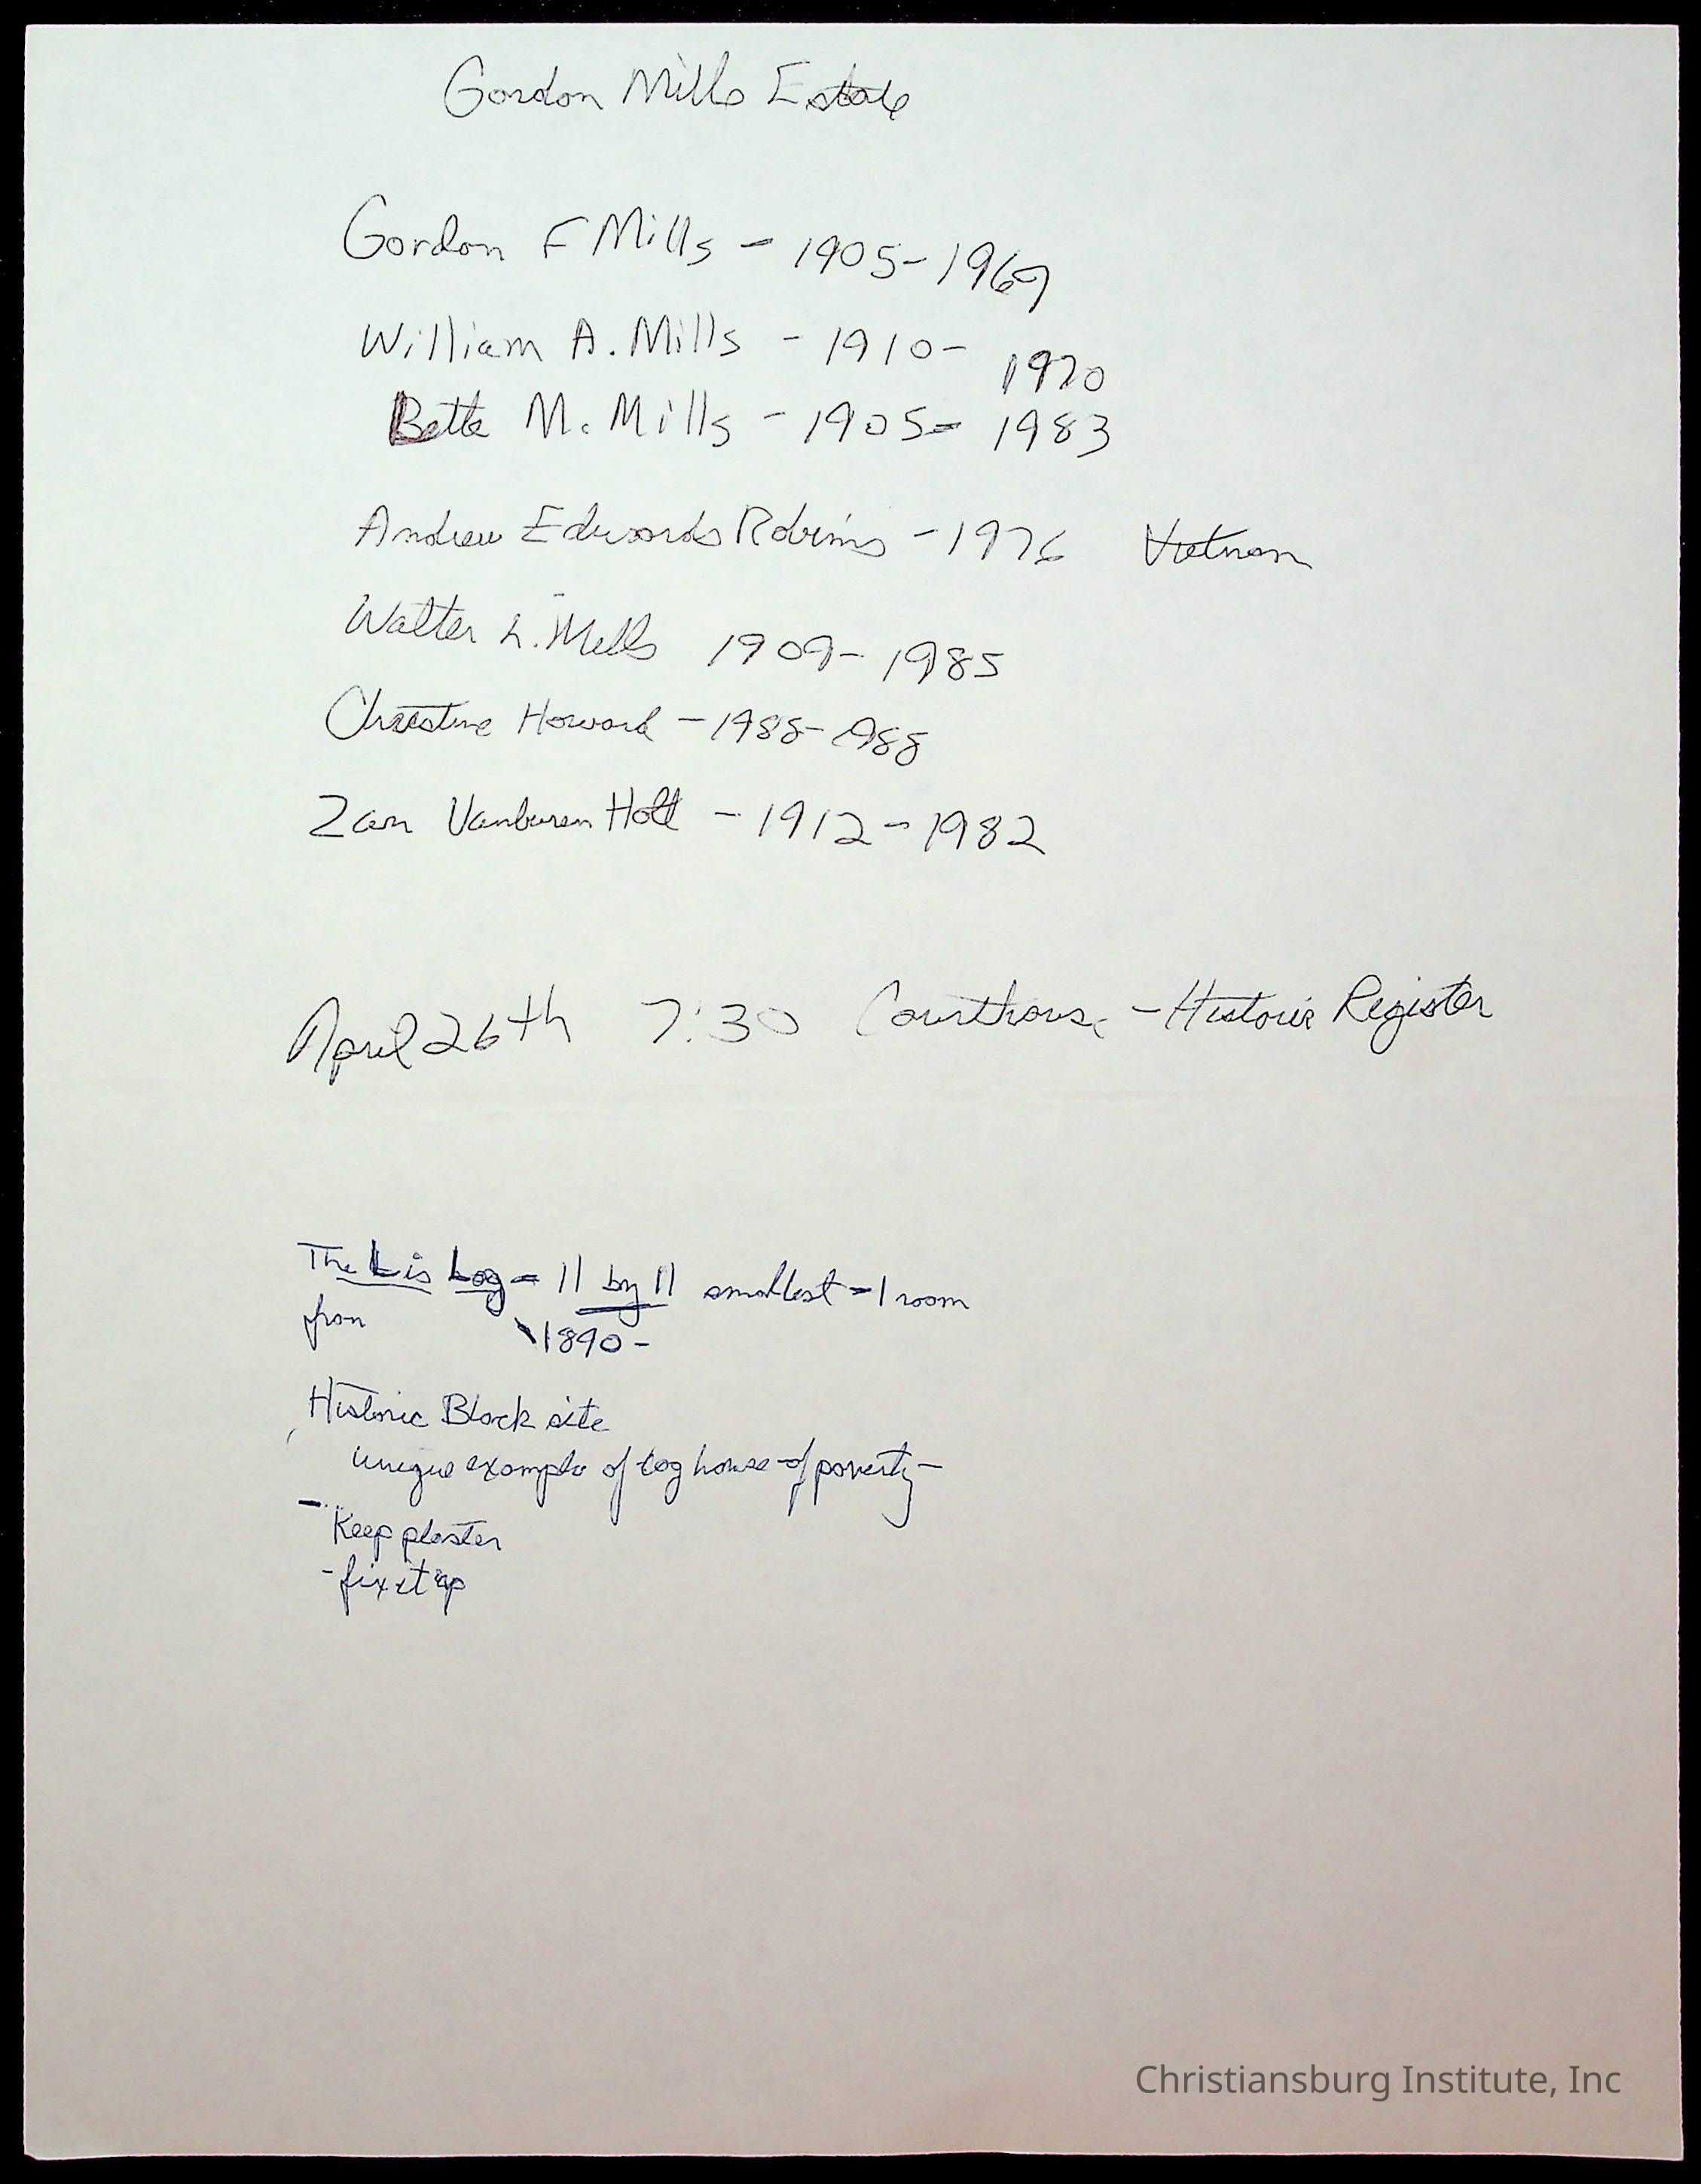 Gordon Mills Estate
Gordon F Mills - 1905-1969
William A. Mills - 1910- 1970
Bette M. Mills - 1905- 1983
Andrew Edwards Robins - 1976 Vietnam
Walter L. Mills 1909- 1985
Christine Howard - 1988- 1988
Zan Vanburen Holt - 1912 - 1982
April 26th 7:30 Courthouse - Historic Register
The Log - 11 by 11 smallest - 1 room
1890 -
Historic Black site
unique example of log house - of poverty -
- Keep plaster
- fix it up
Christiansburg Institute, Inc